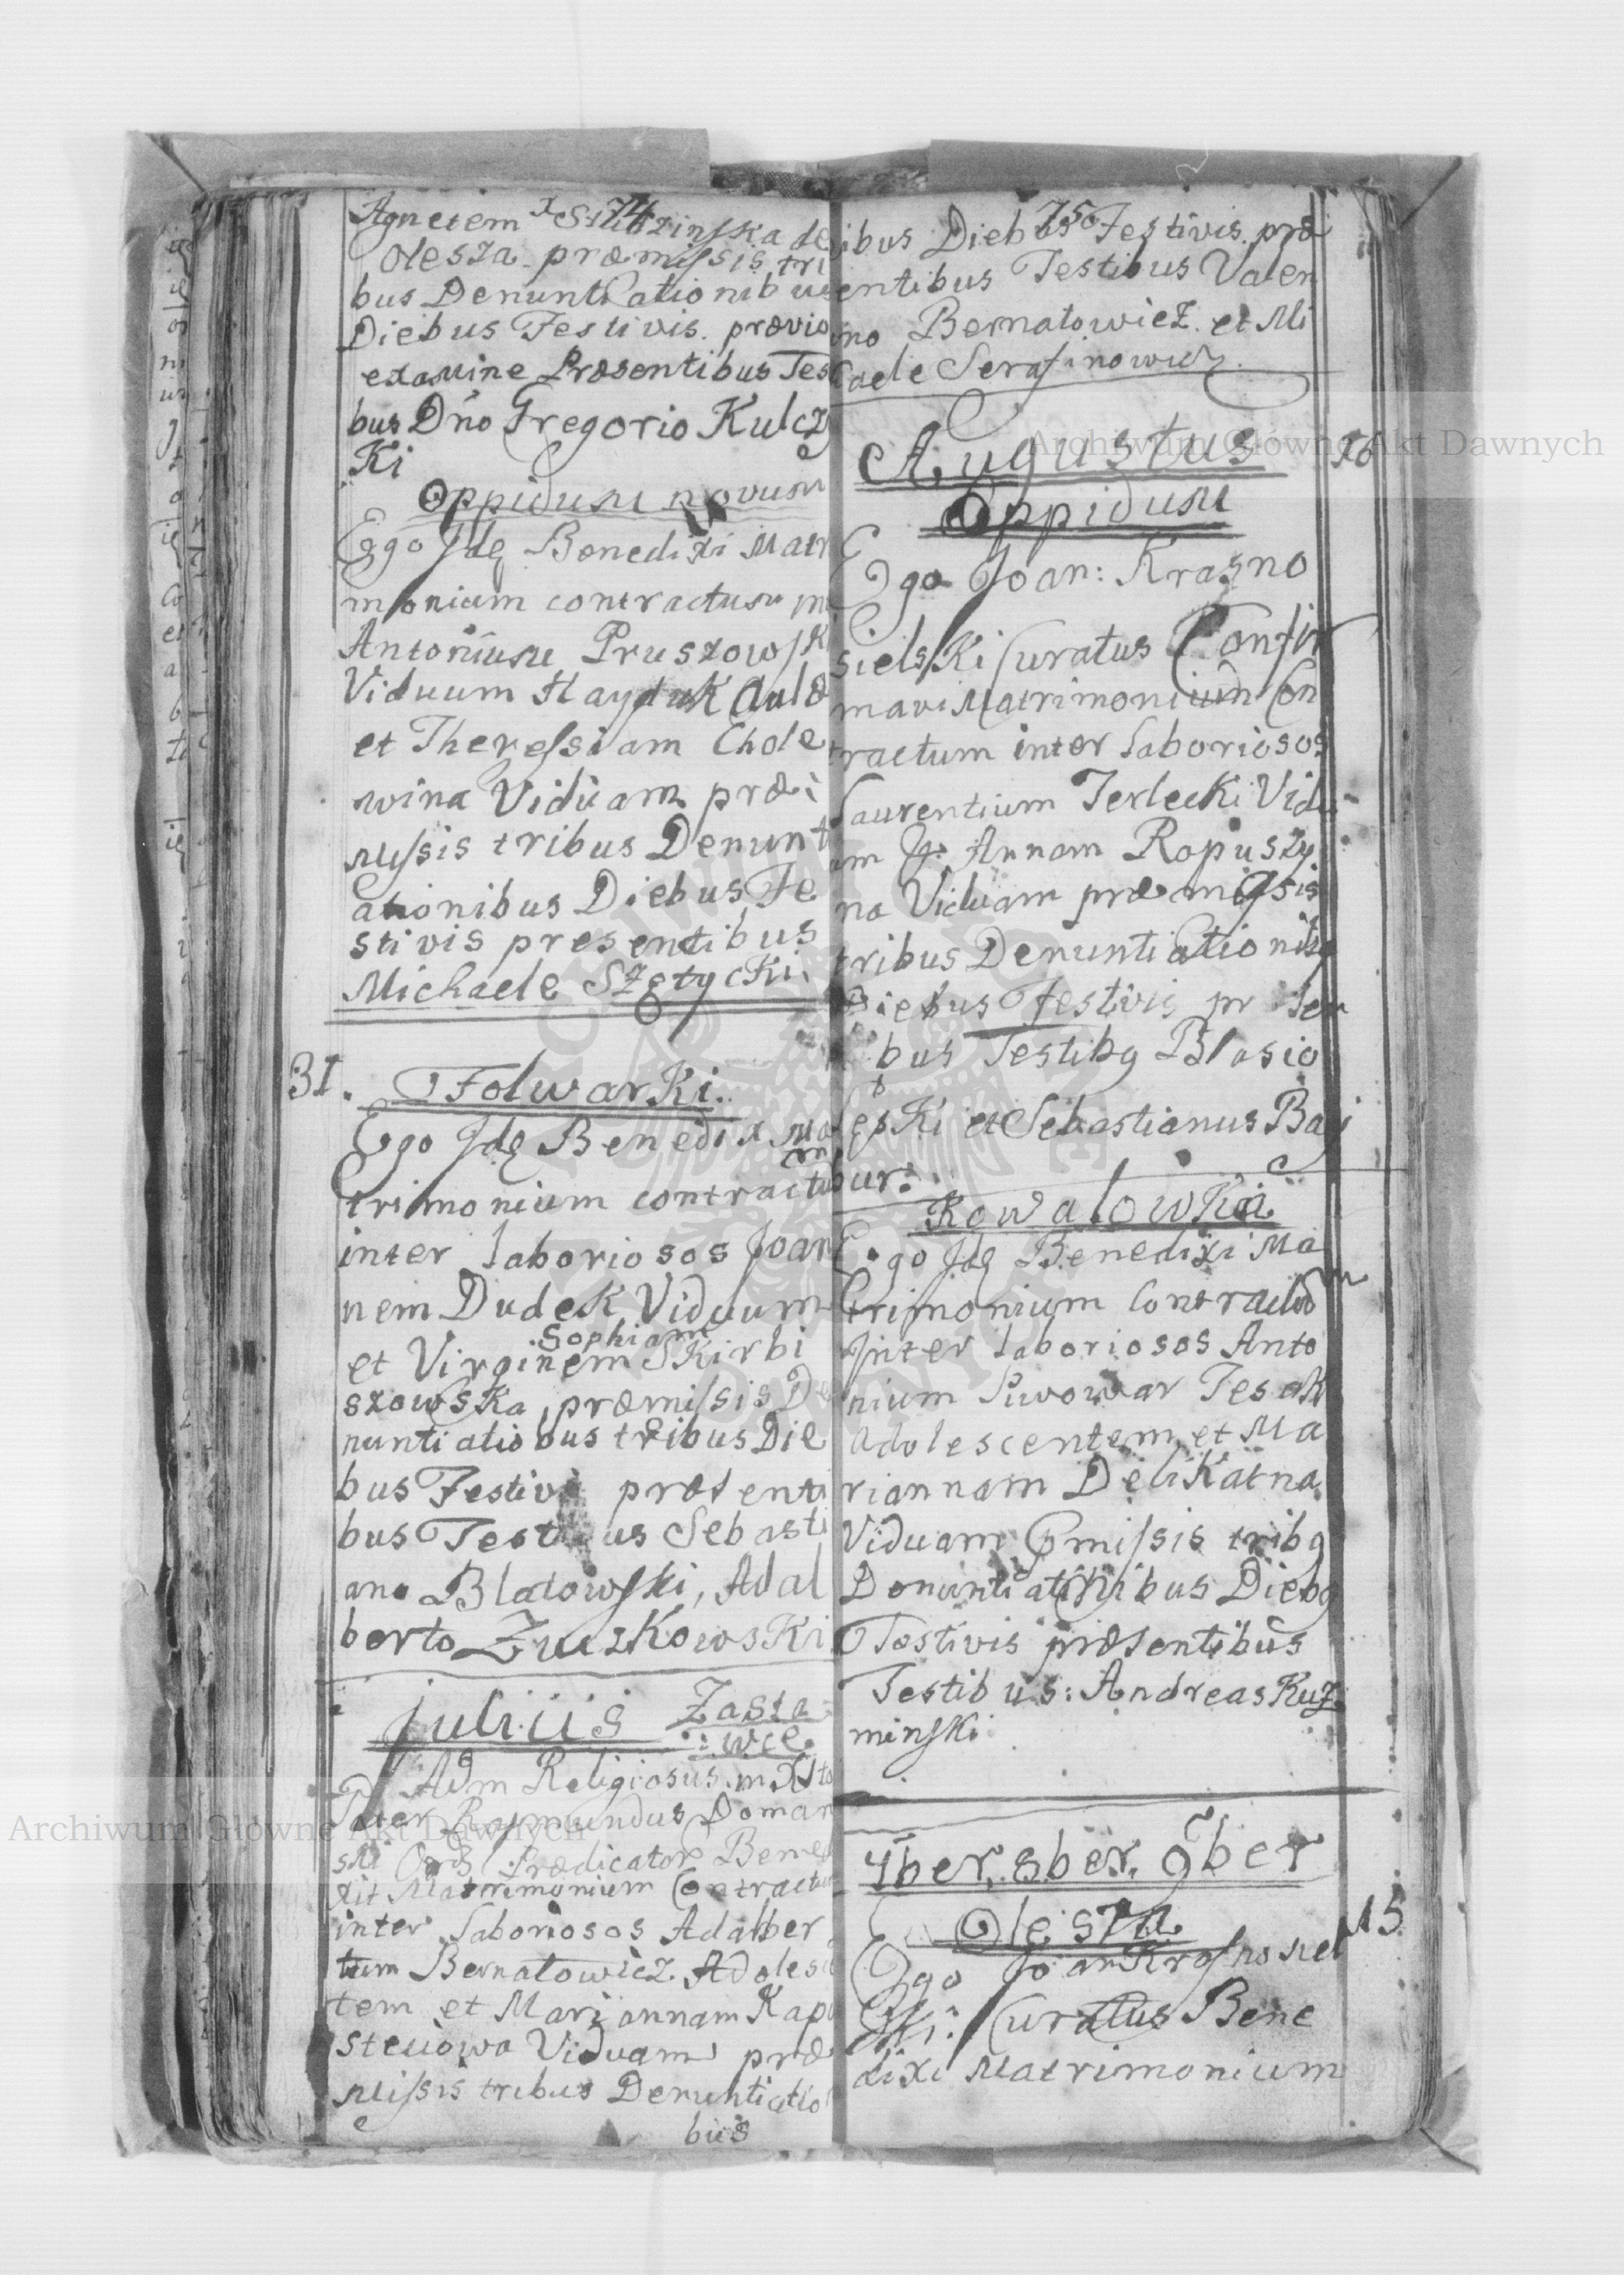 74
Agnetem
Olesza præmissis tri
bus Denuntiationibus
Diebus Festivis prævio
examine Præsentibus Tes
bus Dño Gregorio Kulcz
Ki
Oppidum novum
Ego Jdẽ Benedixi Matr
monium contractum
Antonium Pruszowski
Viduum Hayduk Aulæ
et Theressiam Chole
wina Viduam præ
missis tribus Denunt
ationibus Diebus Fe
stivis presentibus
Michaele Szetycki
31. Folwarki.
Ego Jdẽ Benedix Ma
trimonium contractum
inter laboriosos Joan
nem Dudek Viduum
et Virginem Sophiam Skirbi
szowska præmissis De
nuntiatiobus tribus Die
bus Festivi præsenti
bus Testibus Sebasti
ano Blatowski, Adal
berto Zuszkowski
Julius Zasta
wce
Adm Religiosus in Xsto
Pater Raymundus Doman
ski Ord Prædicator Bened
xit Matrimonium Contractu
inter Laboriosos Adalber
tum Bernatowicz Adolesc
tem et Mariannam Kapu
steuowa Viduam præ
missis tribus Denuntiatio
bus
75
ibus Diebus Festivis præ
entibus Testibus Valen
ino Bernatowicz et Mi
chaele Serafinowicz
Augustus 16
Oppidum
Ego Joan: Krasno
sielski Curatus Confir
mavi Matrimonium Con
tractum inter laboriosos
Laurentium Terlecki Vidu
um Annam Ropuszy
na Viduam præmissis
tribus Denuntiationibg
Diebus Festivis
bus Testibg Blasio
et Sebastianus
Kowalowka
Ego Jdẽ Benedixi Ma
trimonium Contractum
Inter laboriosos Anto
nium Piwowar Tesak
Adolescentem et Ma
riannam Delikatna
Viduam Pmissis tribg
Denuntiationibus Diebg
Festivis præsentibus
Testibus: Andreas Kuz
minski
7ber. 8ber. 9ber
Olesza 15
Ego Joan Krasnosiel
ski: Curatus Bene
dixi Matrimonium
Archiwum Główne Akt Dawnych
Archiwum Główne Akt Dawnych